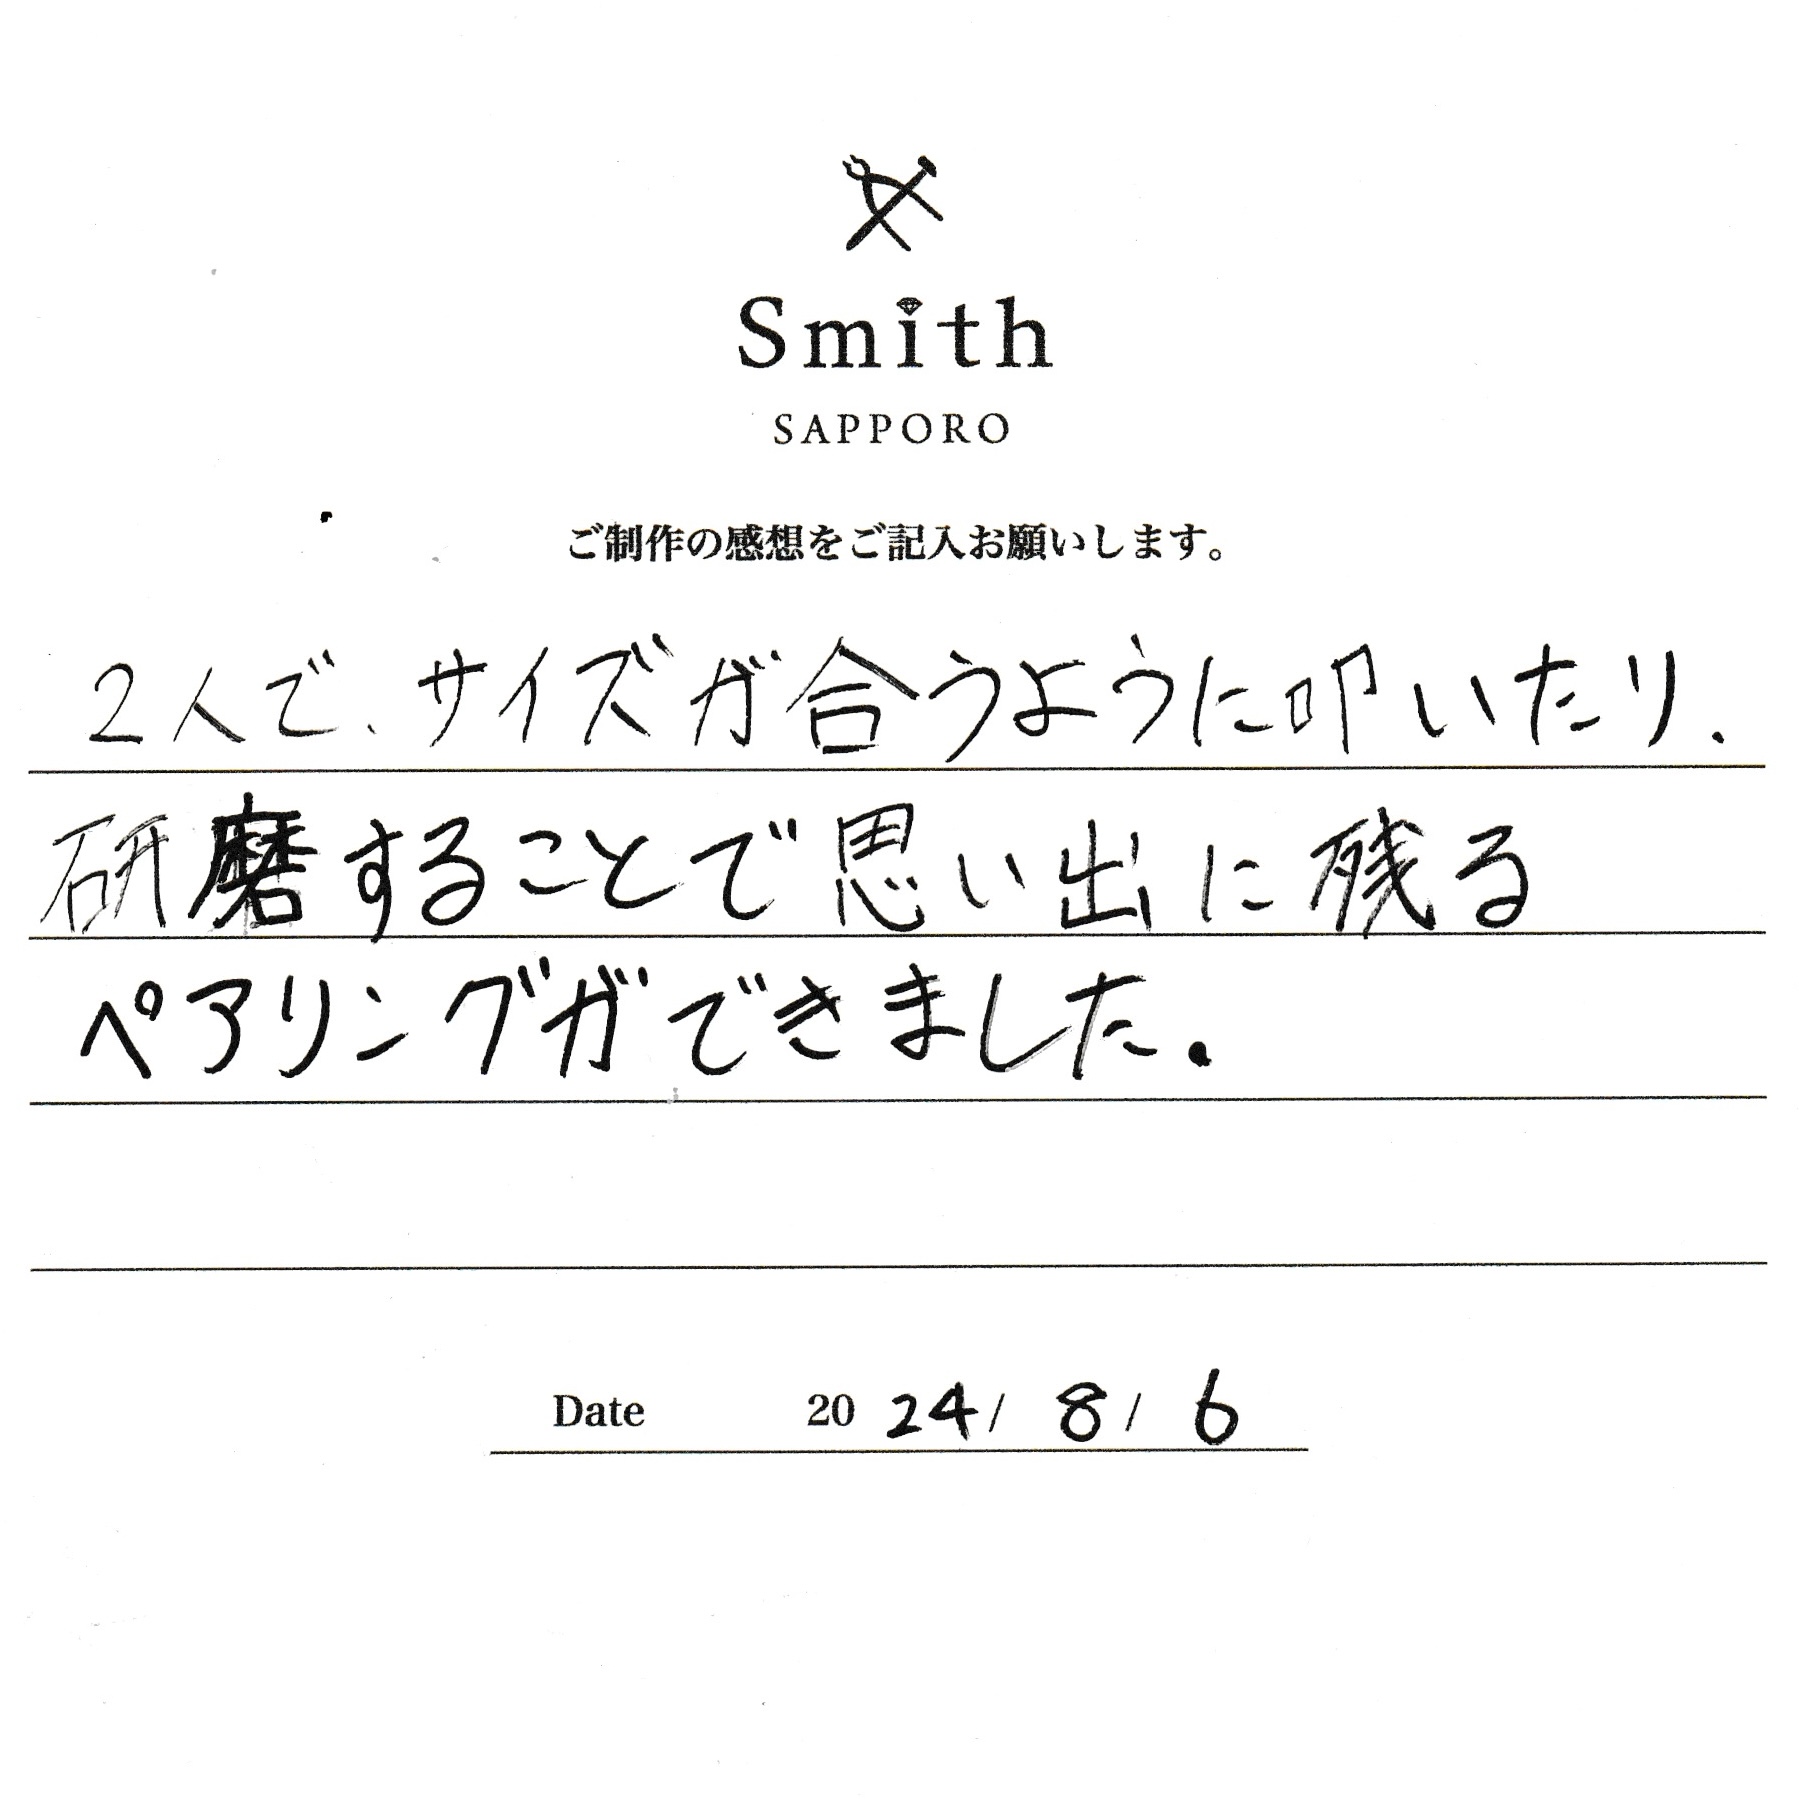 Smith
SAPPORO
ご制作の感想をご記入お願いします。
2人で、サイズが合うように叩いたり、
研磨することで思い出に残る
ペアリングができました。
Date 2024/ 8/ 6